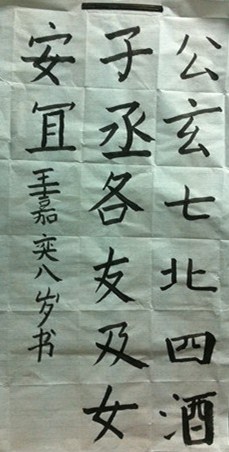 公玄七北四酒
子丞各友及女
安冝
王嘉奕八岁书